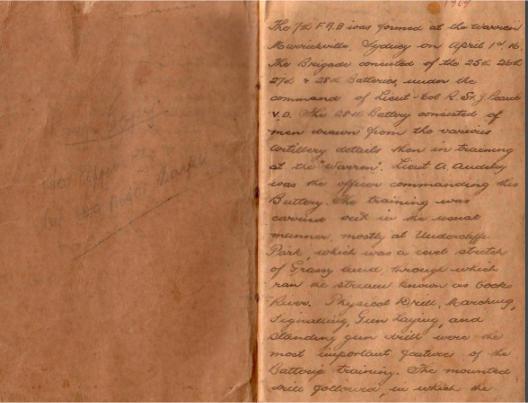 The 7th F.A.B was formed at the Warren
Marrickville, Sydney on April 1st, 16.
The Brigade consisted of the 25th 26th
27th & 28th Batteries, under the
command of Lieut-Col R. St. J.
V.D. The 28th Battery consisted of
men drawn from the various
artillery details then in training
at the "Warren". Lieut A. Audsley
was the officer commanding this
Battery. The training was
carried out in the usual
manner, mostly at Undercliffe
Park, which was a level stretch
of Grassy land, through which
ran the stream known as Cooks
River. Physical Drill, Marching,
Signalling, Gun Laying, and
standing gun drill were the
most important features of the
Batterys training. The mounted
drill followed, in which the